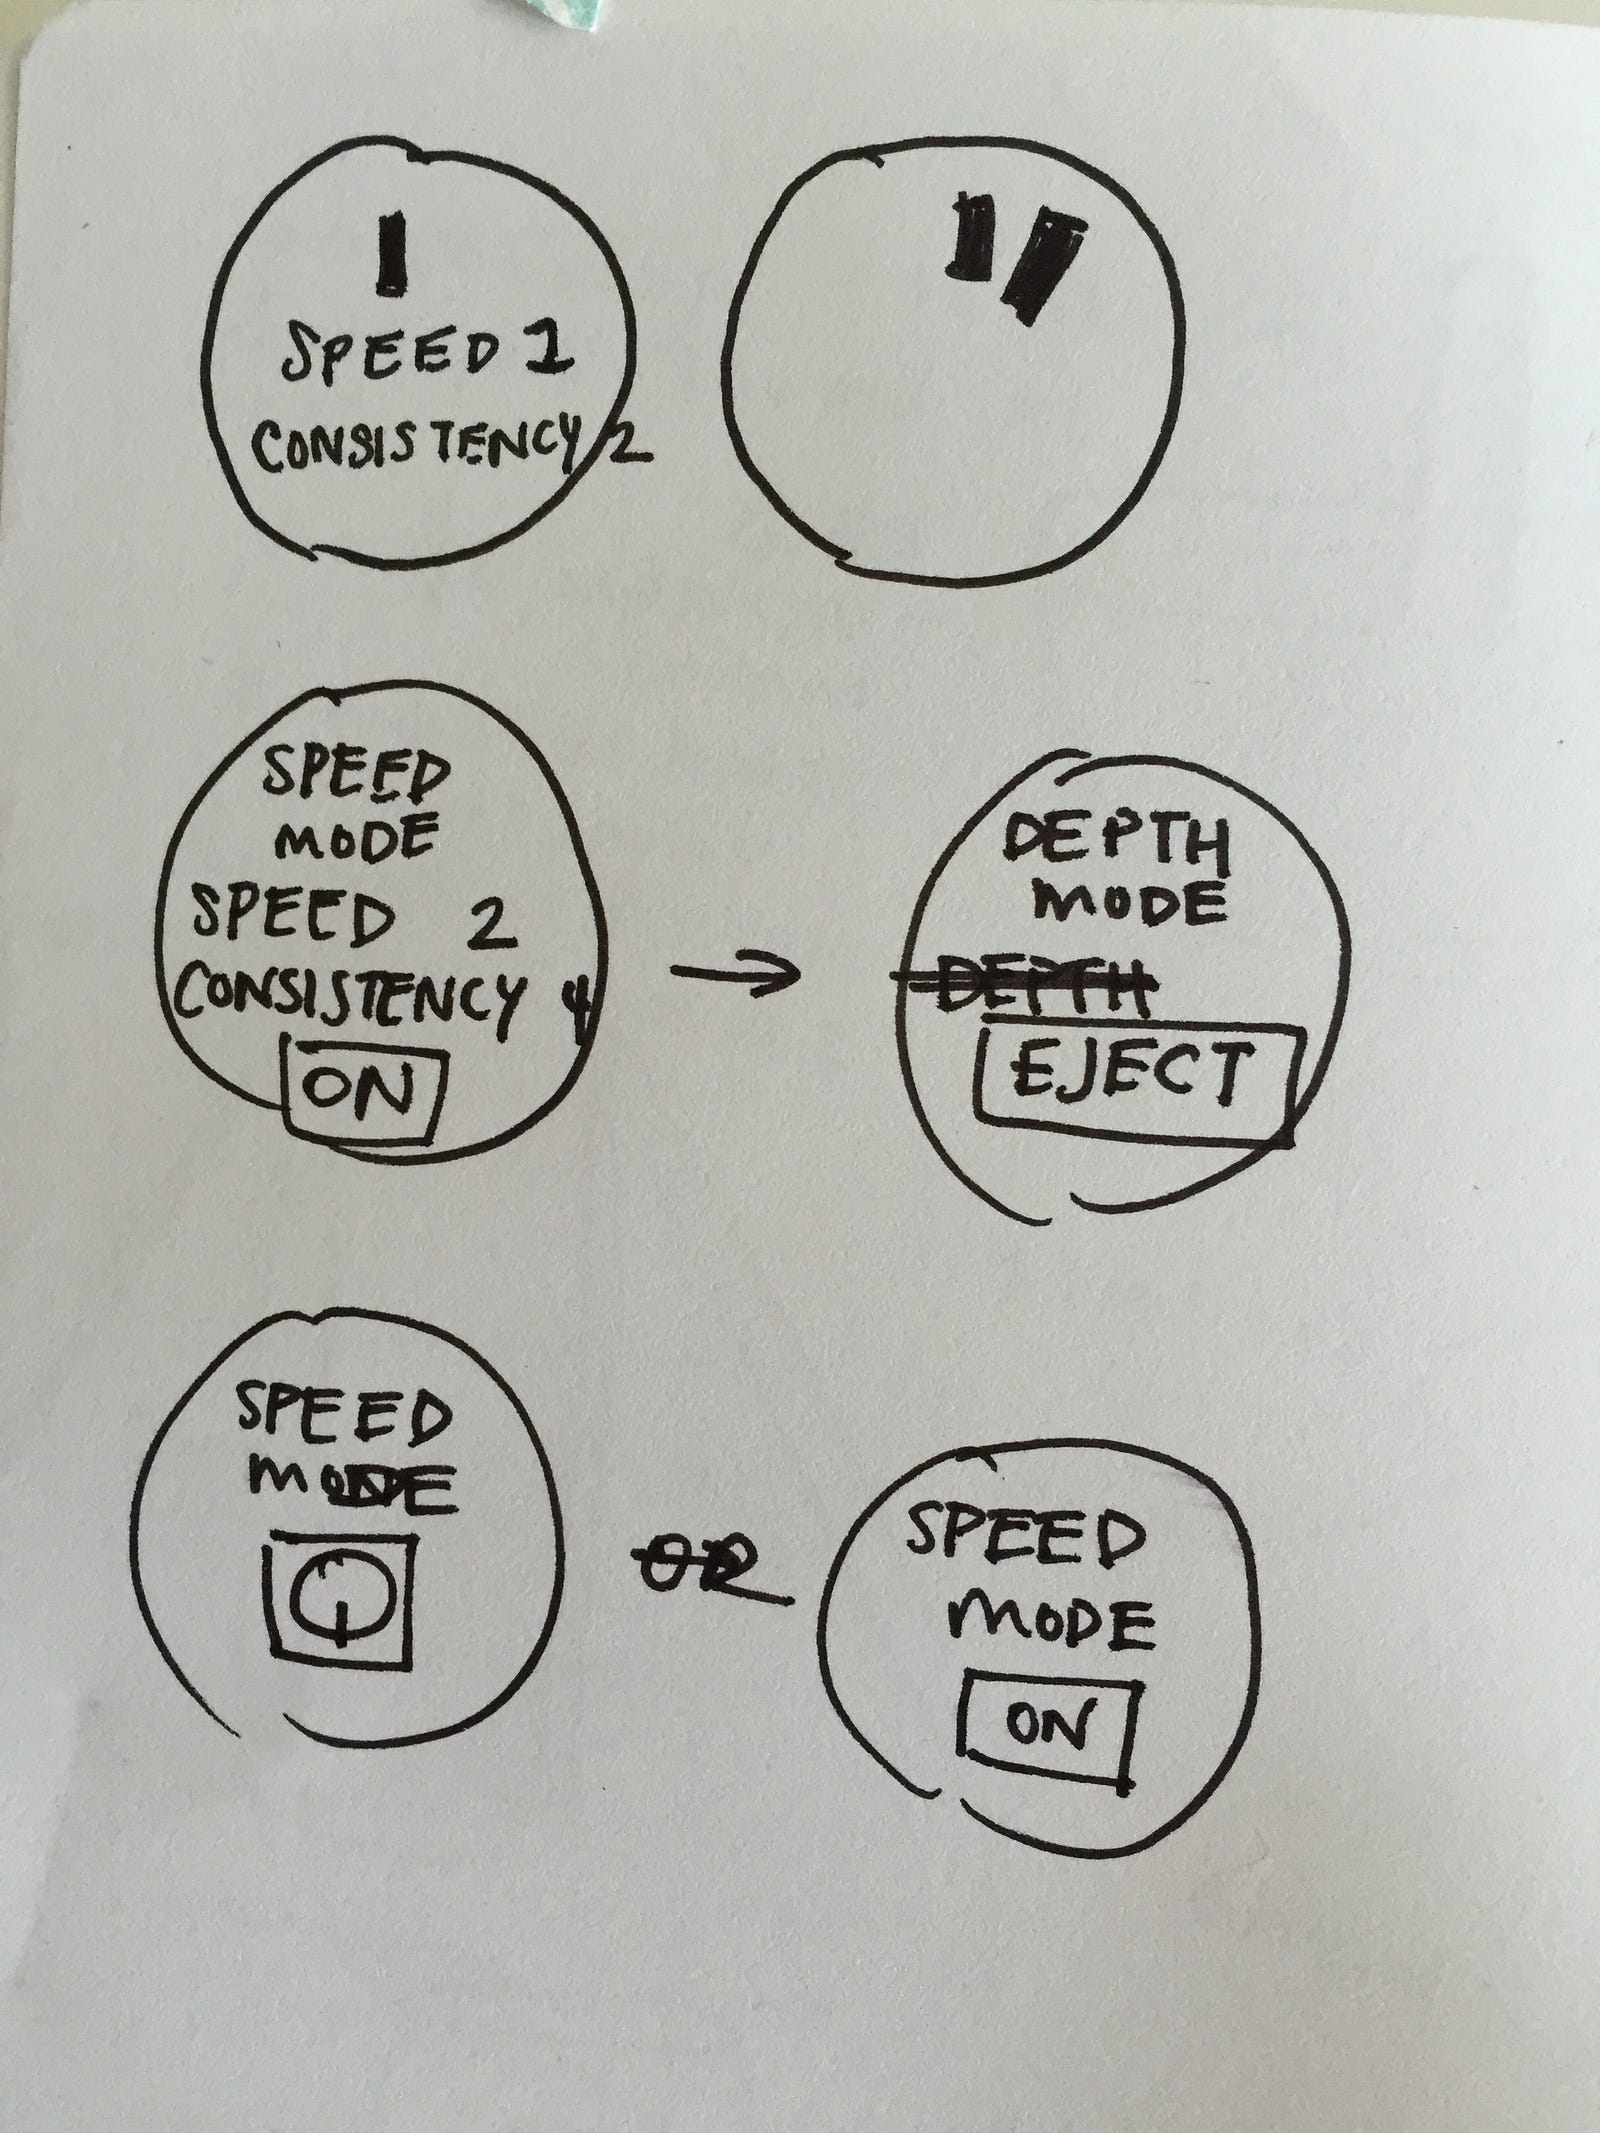 SPEED 1
CONSISTENCY 2
SPEED
MODE
SPEED 2
CONSISTENCY 4
ON
DEPTH
MODE
DEPTH
EJECT
SPEED
MODE
OR
SPEED
MODE
ON